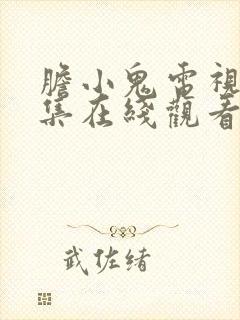 膽小鬼電視
集在綫觀看
武佐緒